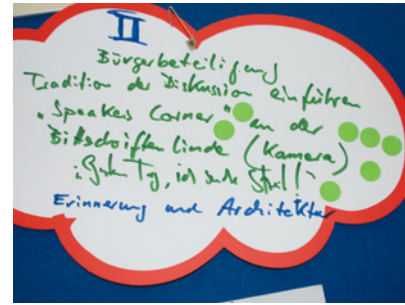 II
Bürgerbeteiligung
Tradition der Diskussion einführen
"Speakers Corner" an der
Bittschriftenlinde (Kamera)
"Guten Tag, ich suche Streit!"
Erinnerung und Architektur